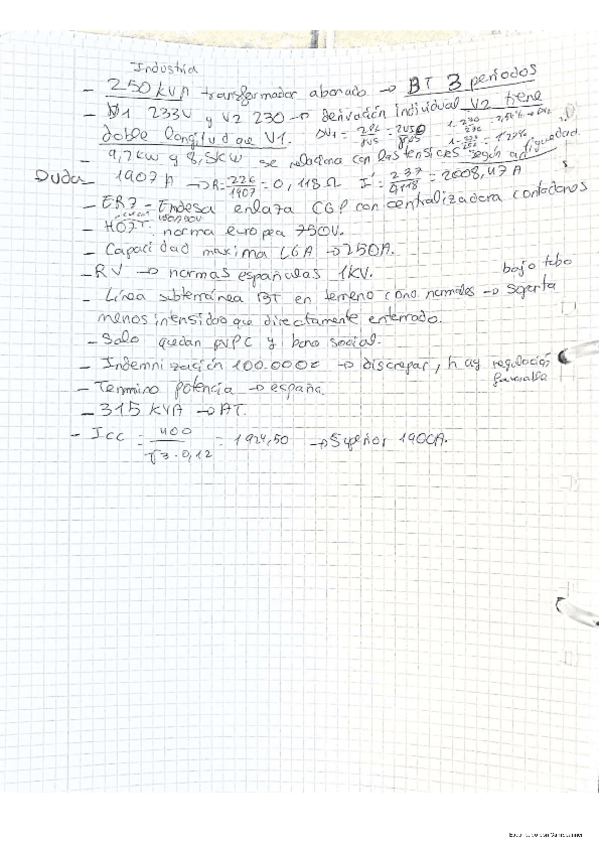 Industria
- 250 kVA transformador abonado → BT 3 periodos
- V1 233V y V2 230 → derivación individual V2 tiene
doble longitud que V1.
- 9,2kw y 8,5kw se relaciona con las tensiones según antiguedad.
Dudas - 1907 A → R = 226/1907 = 0,118 Ω I' = 237/0,118 = 2008,47A
- ER7 - Endesa enlaza CGP con centralizadora contadores
- H07Z: norma europea 750V.
- Capacidad maxima LGA → 250A.
- RV → normas españolas 1kV.
- Línea subterránea BT en terreno cond normales → soporta bajo tubo
menos intensidad que directamente enterrado.
- Solo quedan PVPC y bono social.
- Indemnización 100.000€ → discrepar, hay regulación favorable
- Termino potencia → españa.
- 315 kVA → AT.
- Icc = 400/√3·0,12 = 1924,50 → Superior 1900A.